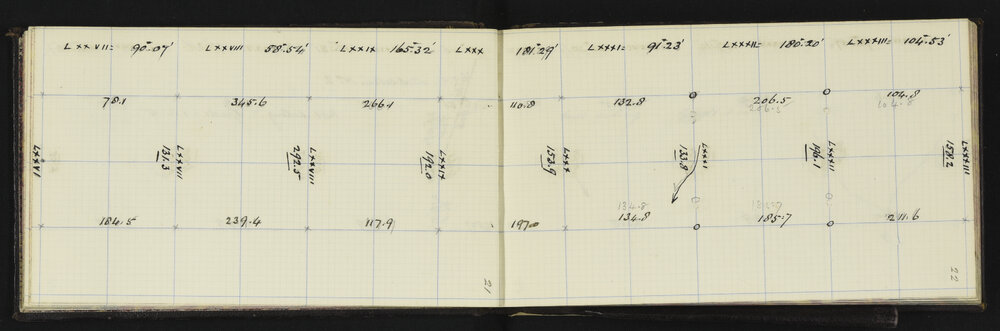 LXXVII= 90°.07' LXXVIII 58°.54' LXXIX 165°.32' LXXX 181°.29' LXXXI= 91°.23' LXXXII= 180°.20' LXXXIII= 104°.53'
78.1 345.6 266.1 110.8 132.8 206.5 104.8
206.5 104.8
LXXVI
131.3 LXXVII
292.5 LXXVIII
192.0 LXXIX
153.9 LXXX
133.8 LXXXI
196.1 LXXXII
158.2 LXXXIII
134.8 185.7
184.5 239.4 117.9 197.0 134.8 185.7 211.6
21
22